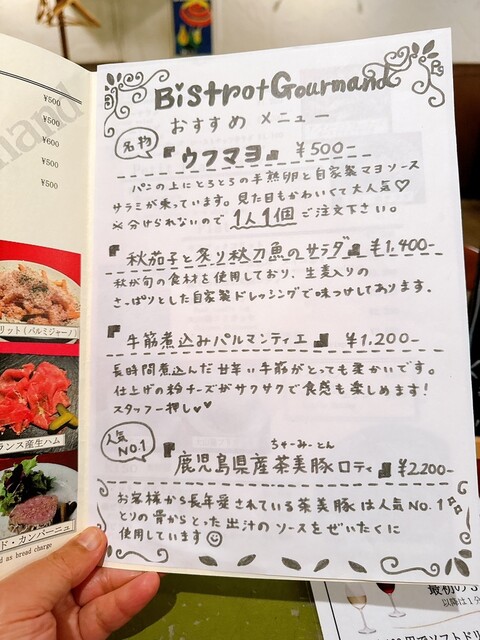 ¥500
¥500
¥600
¥500
¥500
リット(パルミジャーノ)
ランス産生ハム
ド・カンパーニュ
d as bread charge
Bistrot Gourmand
おすすめ メニュー
名物
『ウフマヨ』 ¥500-
パンの上にとろとろの半熟卵と自家製マヨソース
サラミが乗っています。見た目もかわいくて大人気♡
※分けられないので 1人1個 ご注文下さい。
『秋茄子と炙り秋刀魚のサラダ』 ¥1,400-
秋が旬の食材を使用しており、生姜入りの
さっぱりとした自家製ドレッシングで味つけしてあります。
『牛筋煮込みパルマンティエ』 ¥1,200-
長時間煮込んだ甘辛い牛筋がとっても柔かいです。
仕上げの粉チーズがサクサクで食感も楽しめます!
スタッフ一押し♥♥
人気No.1
ちゃーみーとん
『鹿児島県産茶美豚ロティ』 ¥2,200-
お客様から長年愛されている茶美豚は人気No.1
とりの骨からとった出汁のソースをぜいたくに
使用しています☺
最初の
以降は1